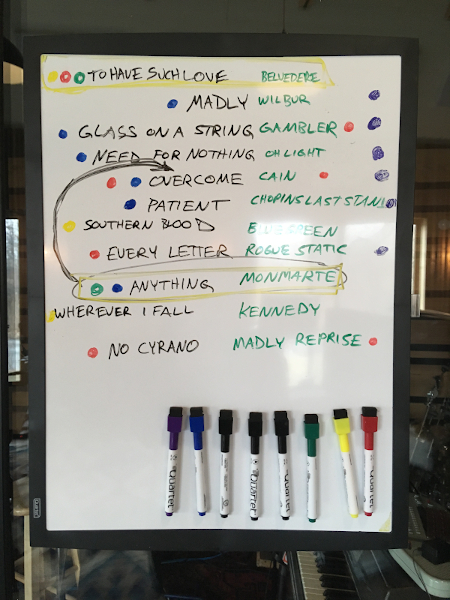 TO HAVE SUCH LOVE BELVEDERE
MADLY WILBUR
GLASS ON A STRING GAMBLER
NEED FOR NOTHING OH LIGHT
OVERCOME CAIN
PATIENT CHOPINS LAST STAND
SOUTHERN BLOOD BLUEGREEN
EVERY LETTER ROGUE STATIC
ANYTHING MONMARTE
WHEREVER I FALL KENNEDY
NO CYRANO MADLY REPRISE
Quartet
Quartet
Quartet
Quartet